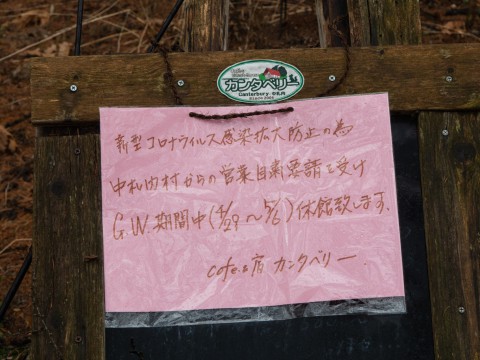 カンタベリー
Canterbury
新型コロナウイルス感染拡大防止の為
中札内村からの営業自粛要請を受け
G.W.期間中(4/29～5/6)休館致します.
cafe&宿 カンタベリー.